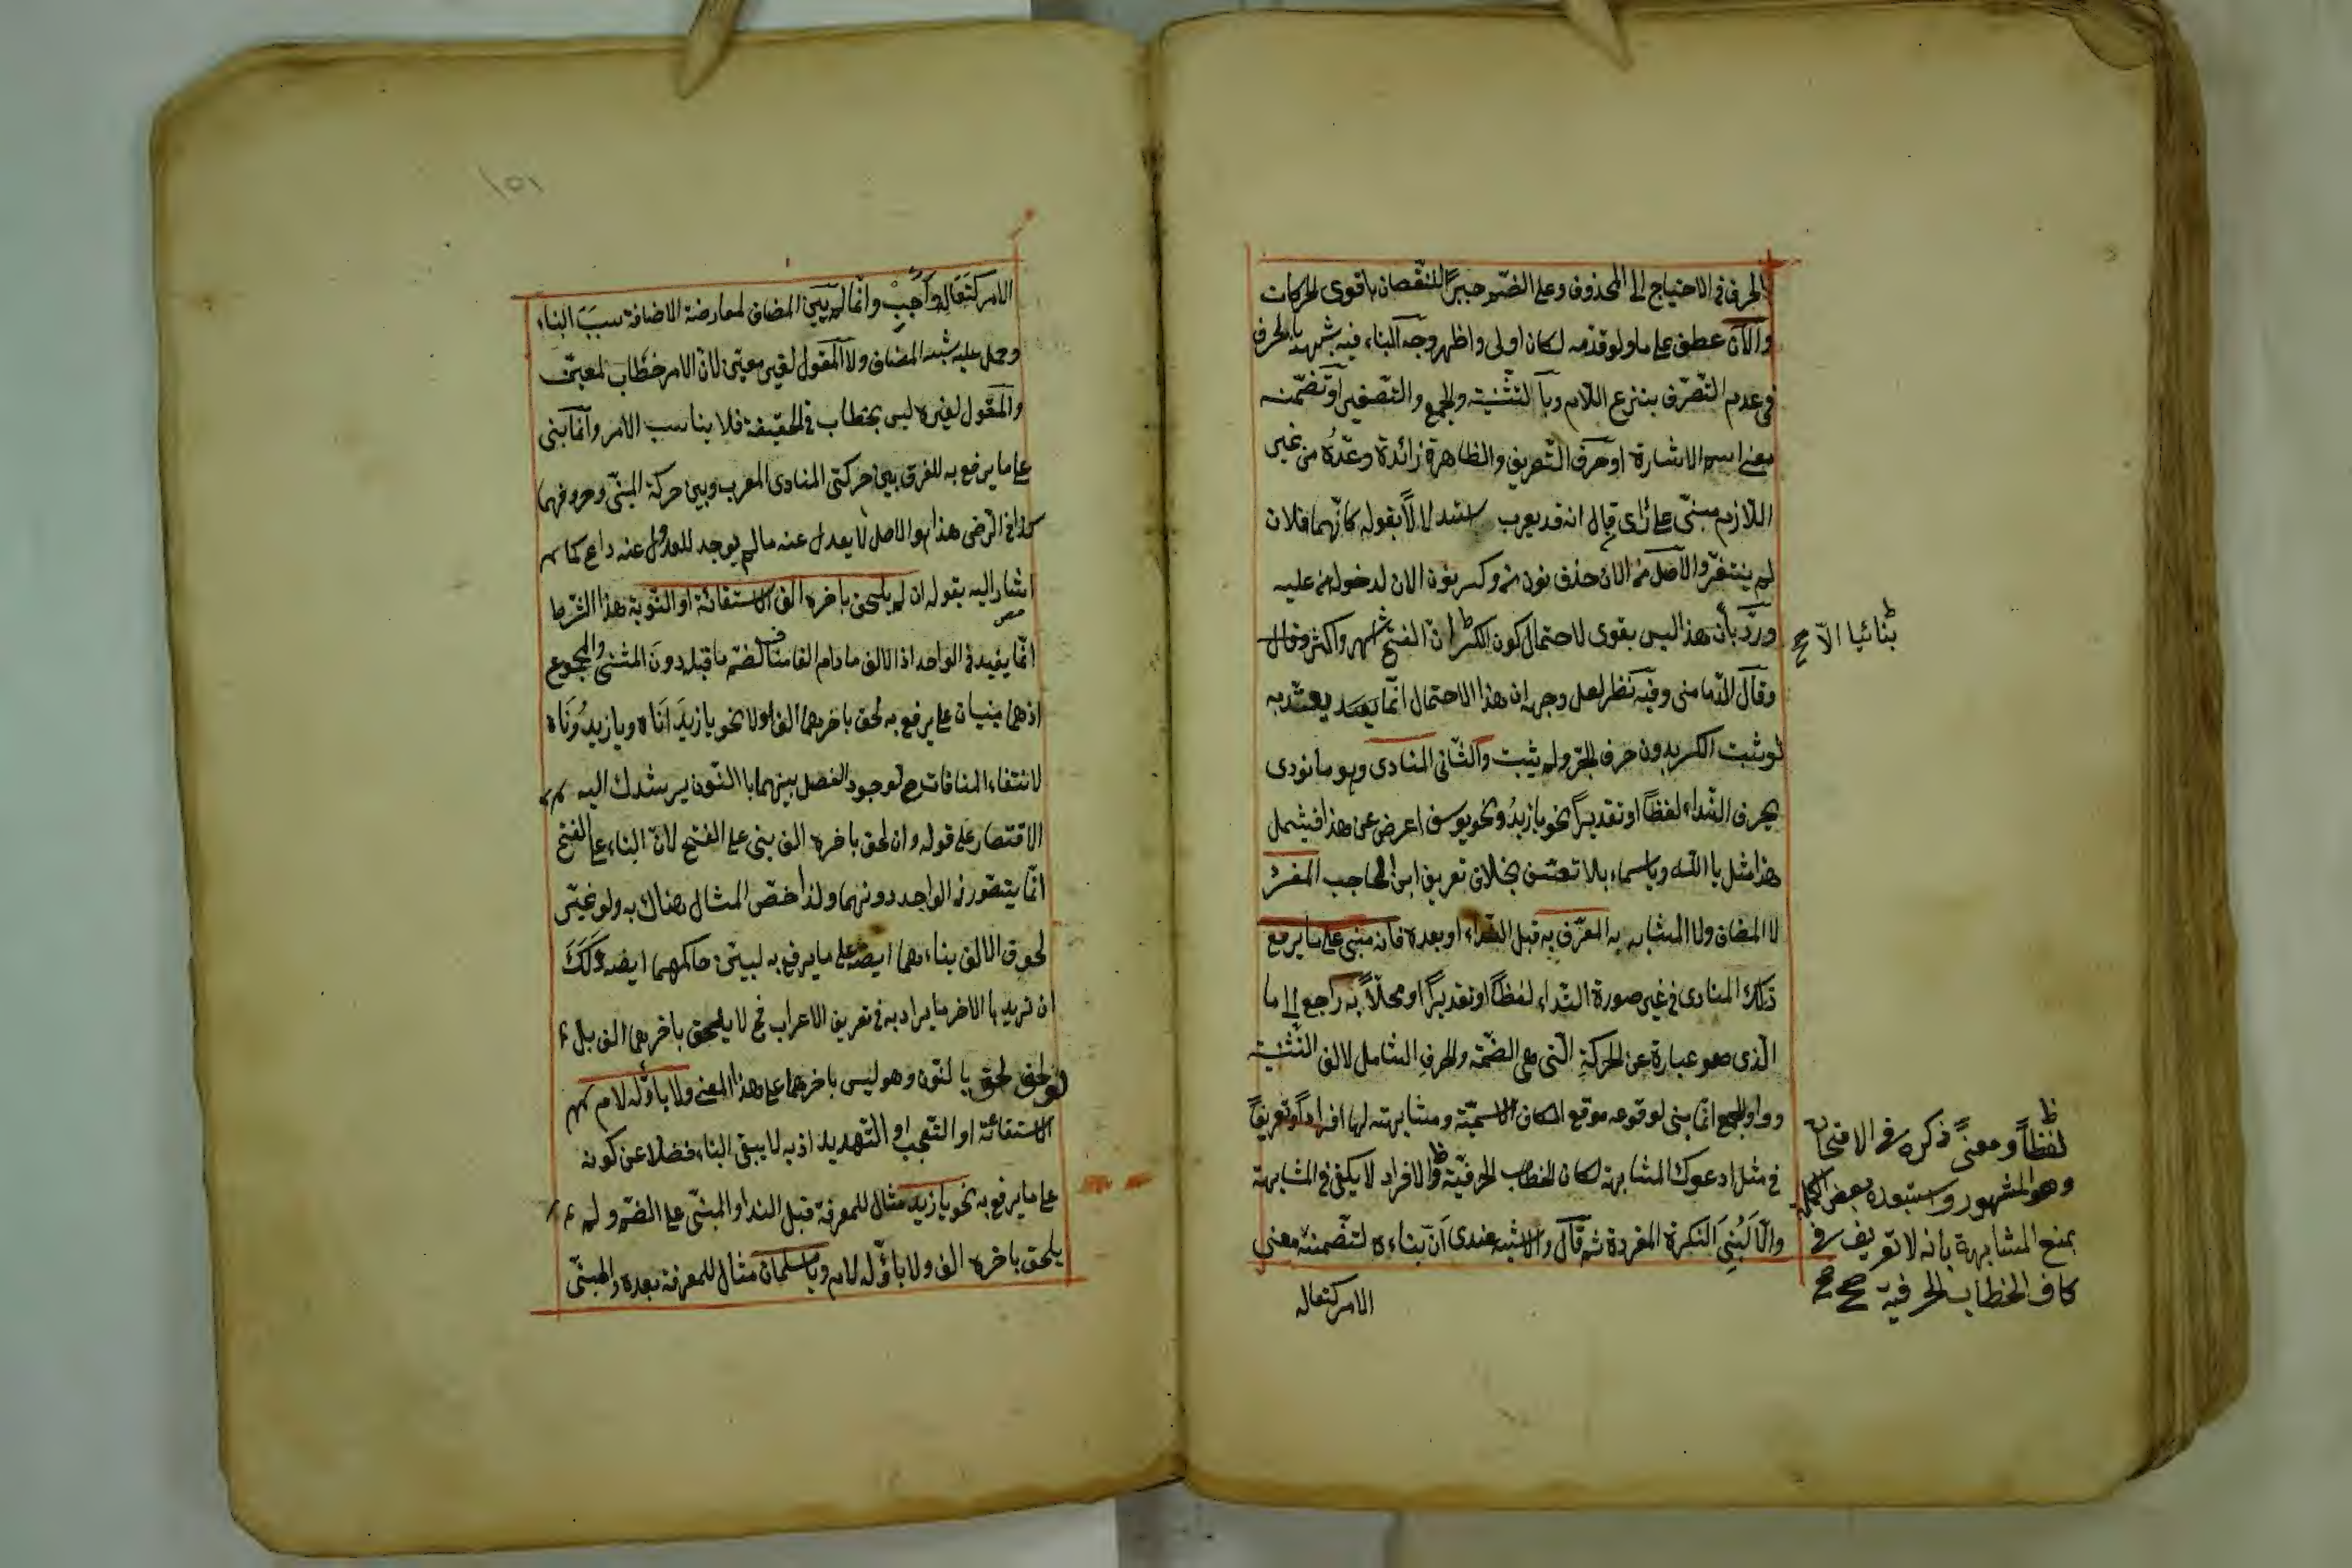 الحرف في الاحتياج الى المحذوف وعلى الضم جبرًا للنقصان باقوى الحركات
والآن عطف على ما ولو قدمه لكان اولى واظهر وجه البناء فيه شبهه بالحرف
في عدم التصرف بنزع اللام وبالتثنية والجمع والتصغير او تضمنه
معنى اسم الاشارة او حرف التعريف والظاهرة زائدة وعدّه من غير
اللازم مبني على رأي قال انه قد يعرب استدلالًا بقوله كأنهما ملان
لم يتغيرا والاصل من الان حذف نون من وكسر نون الان لدخول من عليه
وردّ بأن هذا ليس بقوي لاحتمال كون الكسر ان الفتح اشهر واكثر وقال
بنائيا الا صح
وقال الدماميني وفيه نظر لعل وجهه ان هذا الاحتمال انما يعتد به
لو ثبت الكسر بدون حرف الجر ولم يثبت والثاني المنادى وهو ما نودي
بحرف النداء لفظًا او تقديرًا نحو يا زيدُ ونحو يوسف اعرض عن هذا فيشمل
هذا مثل يا الله ويا سماء بلا تعسف بخلاف تعريف ابن الحاجب المفرد
لا المضاف ولا المشابه به المعرّف به قبل النداء او بعده فانه مبني على ما يرفع
ذلك المنادى في غير صورة النداء لفظًا او تقديرًا او محلًا به راجع الى ما
الذي هو عبارة عن الحركة التي هي الضمة والحرف الشامل لالف التثنية
وواو الجمع انما بني لوقوعه موقع الكاف الاسمية ومشابهته لها افرادًا وتعريفًا
في مثل ادعوك المشابهة لكاف الخطاب الحرفية والافراد لا يكفي في المشابهة
والا لبُني النكرة المفردة ثم قال والاشبه عندي انّ بناءه لتضمنه معنى
الامر كتعال
لفظًا ومعنًى ذكره في الامتحان
وهو المشهور واستبعده بعض الكمل
بمنع المشابهة بانه لا تعريف في
كاف الخطاب الحرفية صح صح
١٥١
الامر كتعال واجب وانما لم يبن المضاف لمعارضة الاضافة سبب البناء
وحمل عليه شبه المضاف ولا المقول لغير معين لان الامر خطاب لمعين
والمقول لغيره ليس بخطاب في الحقيقة فلا يناسب الامر وانما بني
على ما يرفع به للفرق بين حركتي المنادى المعرب وبين حركة المبني وحروفهما
كذا في الرضي هذا هو الاصل لا يعدل عنه ما لم يوجد للعدول عنه داع كما
اشار اليه بقوله ان لم يلحق باخره الف الاستغاثة او الندبة هذا الشرط
انما يفيد في الواحد اذ الالف ما دام الفا مناف لضم ما قبله دون المثنى والمجموع
اذ هما مبنيان على يرفع به لحق باخرهما الف اولا نحو يا زيدَانَاه ويا زيدُونَاه
لانتفاء المنافات ح لوجود الفصل بينهما بالنون يرشدك اليه
الاقتصار على قوله وان لحق باخره الف بني على الفتح لان البناء على الفتح
انما يتصور في الواحد دونهما ولذا خص المثال هناك به ولو
لحوق الالف بناءهما ايضا على ما يرفع به لبين حاكمهما ايضا ولك
ان تريد بالاخر ما يراد به في تعريف الاعراب فح لا يلحق باخرهما الف بل
لو لحق لحق بالنون وهو ليس باخرهما على هذا المعنى ولا باوّله لام
الاستغاثة او التعجب او التهديد اذ به لا يبقى البناء فضلا عن كونه
على ما يرفع به نحو يا زيد مثال للمعرفة قبل النداء والمبني على الضم ولم
يلحق باخره الف ولا باوّله لام ويا مسلمان مثال للمعرفة بعده والمبنيّ